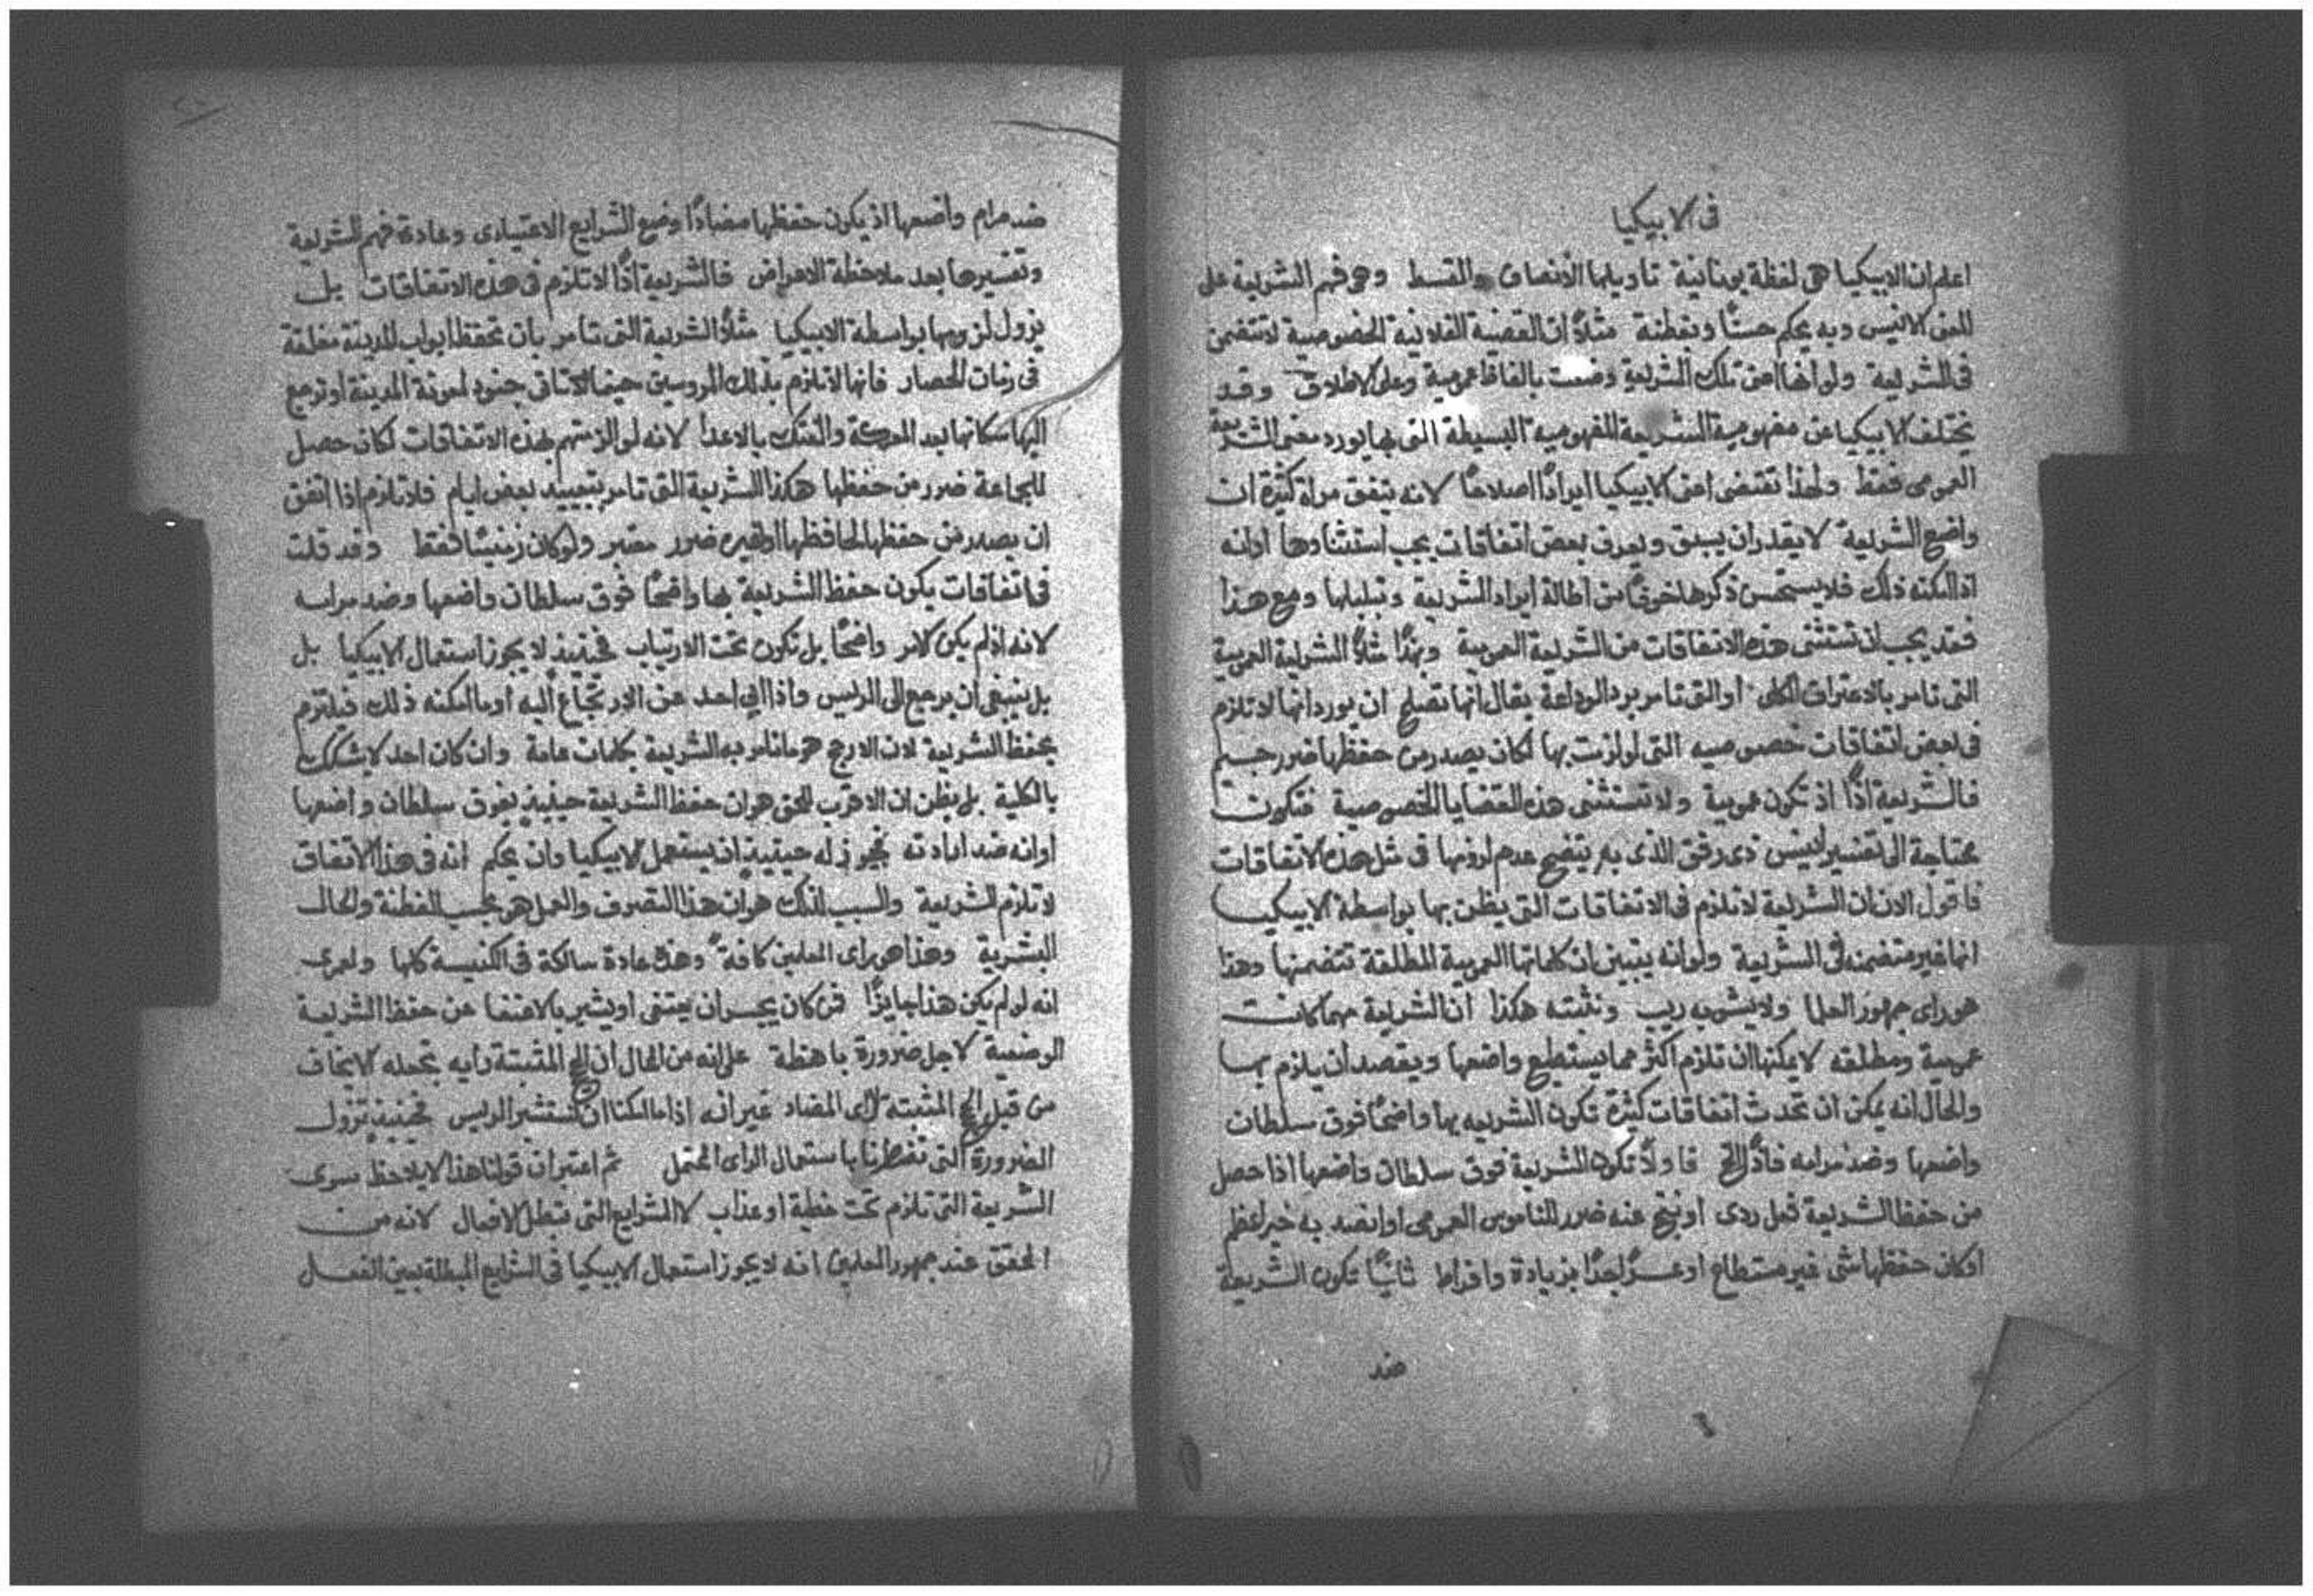 فى الابيكيا
اعلم ان الابيكيا هى لفظة يونانية تاويلها الانصاف والقسط وهى فهم الشريعة على
المعنى الانيس وبه يحكم حسنًا وبفطنة مثلاً ان القضية الفلانية الخصوصية لا تتضمن
فى الشريعة ولو انها اعنى تلك الشريعة وضعت بالفاظ عمومية وعلى الاطلاق وقد
تختلف الابيكيا عن مفهومية الشريعة المفهومية البسيطة التى بها يورد معنى الشريعة
العمومى فقط ولهذا تقتضى اعنى الابيكيا ايرادًا اصلاحًا لانه يتفق مرات كثيرة ان
واضع الشريعة لا يقدر ان يسبق ويعرف بعض اتفاقات يجب استثناوها او انه
اذا امكنه ذلك فلا يستحسن ذكرها خوفًا من اطالة ايراد الشريعة وتبليلها ومع هذا
فقد يجب ان تستثنى هذه الاتفاقات من الشريعة العمومية وبهذا مثلاً الشريعة العمومية
التى تامر بالاعتراف الكلى او التى تامر برد الوداعة يقال انها تصلح ان يورد انها لا تلزم
فى بعض اتفاقات خصوصيه التى لو لزمت بها لكان يصدر من حفظها ضرر جسيم
فالشريعة اذًا اذ تكون عمومية ولا تستثنى هذه القضايا الخصوصية فتكون
محتاجة الى تفسير انيس ذى رفق الذى به يتضح عدم لزومها فى مثل هذه الاتفاقات
فاقول الان ان الشريعة لا تلزم فى الاتفاقات التى يظن بها بواسطة الابيكيا
انها غير متضمنه فى الشريعة ولو انه يتبين ان كلماتها العمومية المطلقة تتضمنها وهذا
هو راى جمهور العلما ولا يشوبه ريب ونثبته هكذا ان الشريعة مهما كانت
عمومية ومطلقه لا يمكنها ان تلزم اكثر مما يستطيع واضعها ويقصد ان يلزم بها
والحال انه يمكن ان تحدث اتفاقات كثيرة تكون الشريعه بها واضحًا فوق سلطان
واضعها وضد مرامه فاذًا الخ فاولاً تكون الشريعة فوق سلطان واضعها اذا حصل
من حفظ الشريعة فعل ردى او نتج عنه ضرر للناموس العمومى او انصد به خير اعظم
او كان حفظها شى غير مستطاع او عسرًا جدًا بزيادة وافراط ثانيًا تكون الشريعة
ضد
ضد مرام واضعها اذ يكون حفظها مضادًا وضع الشرايع الاعتيادى وعادة فهم الشريعة
وتفسيرها بعد ملاحظة الاعراض فالشريعة اذًا لا تلزم فى هذه الاتفاقات بل
يزول لزومها بواسطة الابيكيا مثلاً الشريعة التى تامر بان تحفظ ابواب المدينة مغلقة
فى زمان الحصار فانها لا تلزم بذلك المروسين حينما تاتى جنود لمعونة المدينة او ترجع
اليها سكانها بعد المعركة والفتك بالاعدا لانه لو الزمتهم بهذه الاتفاقات لكان حصل
للجماعة ضرر من حفظها هكذا الشريعة التى تامر بتعييد بعض ايام فلا تلزم اذا اتفق
ان يصدر من حفظها لحافظها او لغيره ضرر معتبر ولو كان زمنيًا فقط وقد قلت
فى اتفاقات يكون حفظ الشريعة بها واضحًا فوق سلطان واضعها وضد مرامه
لانه اذ لم يكن الامر واضحًا بل تكون تحت الارتياب فحينيذ لا يجوز استعمال الابيكيا بل
بل ينبغى ان يرجع الى الريس واذا ابى احد عن الارتجاع اليه او ما امكنه ذلك فيلتزم
بحفظ الشريعة لان الارجح هو ما تامر به الشريعة بكلمات عامة وان كان احد لا يشك
بالكلية بل يظن ان الاقرب للحق هو ان حفظ الشريعة حينيذ يفوق سلطان واضعها
او انه ضد ارادته فيجوز له حينيذ ان يستعمل الابيكيا وان يحكم انه فى هذا الاتفاق
لا تلزم الشريعة والسبب لذلك هو ان هذا التصرف والعمل هو بحسب الفطنة والحال
البشرية وهذا هو راى المعلمين كافةً وهذه عادة سالكة فى الكنيسة كلها ولعمرى
انه لو لم يكن هذا جايزًا فمن كان يجسر ان يعتفى او يشير بالاعتفا عن حفظ الشريعة
الوضعية لاجل ضرورة باهظة على انه من الحال ان الحجج المثبتة رايه تجعله لا يخاف
من قبل الحجج المثبته الراى المضاد غير انه اذا ما امكنا ان نستشير الريس فحينيذ تزول
الضرورة التى تضطرنا باستعمال الراى المحتمل ثم اعتبر ان قولنا هذا لا يلاحظ سوى
الشريعة التى تلزم تحت خطية او عذاب لا الشرايع التى تبطل الافعال لانه من
المحقق عند جمهور المعلمين انه لا يجوز استعمال الابيكيا فى الشرايع المبطلة بعين الفعل